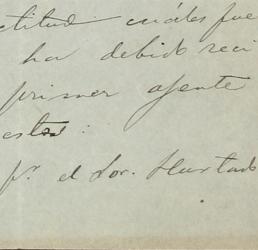 ctitud cuáles fue
ha debido reci
primer agente
estos:
pr. el Sor. Hurtado